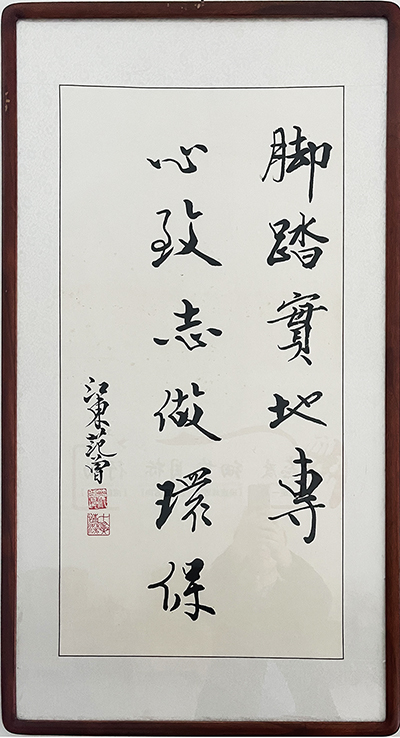 脚踏實地專
心致志做環保
江東范曾